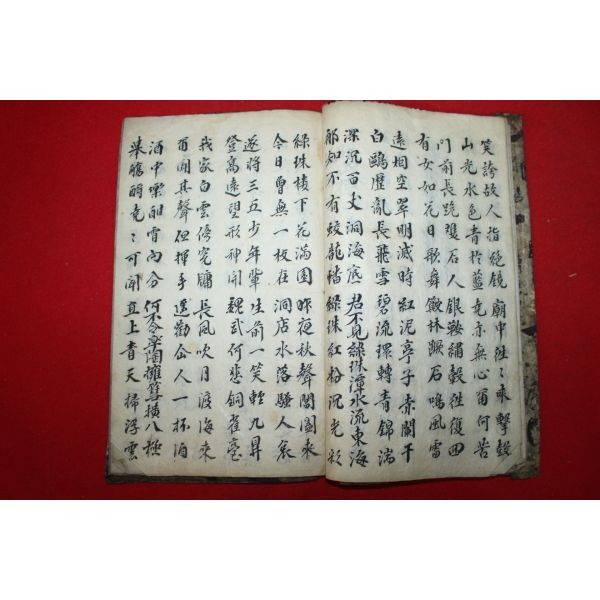 笑誇故人指絶鏡 廟中徃々來擊鼓
山光水色青於藍 堯亦無心爾何苦
門前長跪雙石人 銀鞍繡轂徃復回
有女如花日歌舞 簸林蹶石鳴風雷
遠烟空翠明滅時 紅泥亭子赤闌干
白鷗歷亂長飛雪 碧流環轉青錦湍
深沉百丈洞海底 君不見綠珠潭水流東海
那知不有蛟龍蟠 綠珠紅粉沉光彩
綠珠樓下花滿園 昨夜秋聲閶闔來
今日曾無一枝在 洞庭水落騷人哀
遂將三五少年輩 生前一笑輕九鼎
登高遠望形神開 魏武何悲銅雀臺
我家白雲倚窓牖 長風吹月渡海來
爾聞其聲但揮手 遥勸仚人一杯酒
酒中樂酣宵向分 何不令皐陶擁篲橫八極
舉觴酹堯々可聞 直上青天掃浮雲